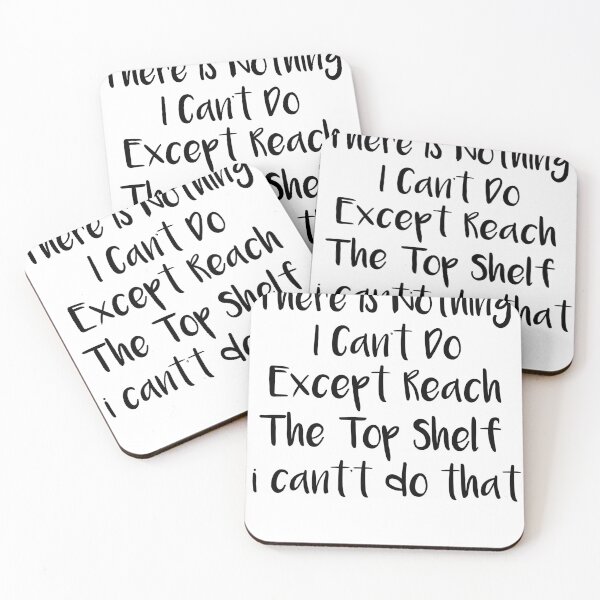 There is Nothing
I Can't Do
Except Reach
The
There is Nothing
I Can't Do
Except Reach
The Top Shelf
i cant't do that
There is Nothing
I Can't Do
Except Reach
The Top Shelf
i cant't do
There is Nothing
I Can't Do
Except Reach
The Top Shelf
i cant't do that